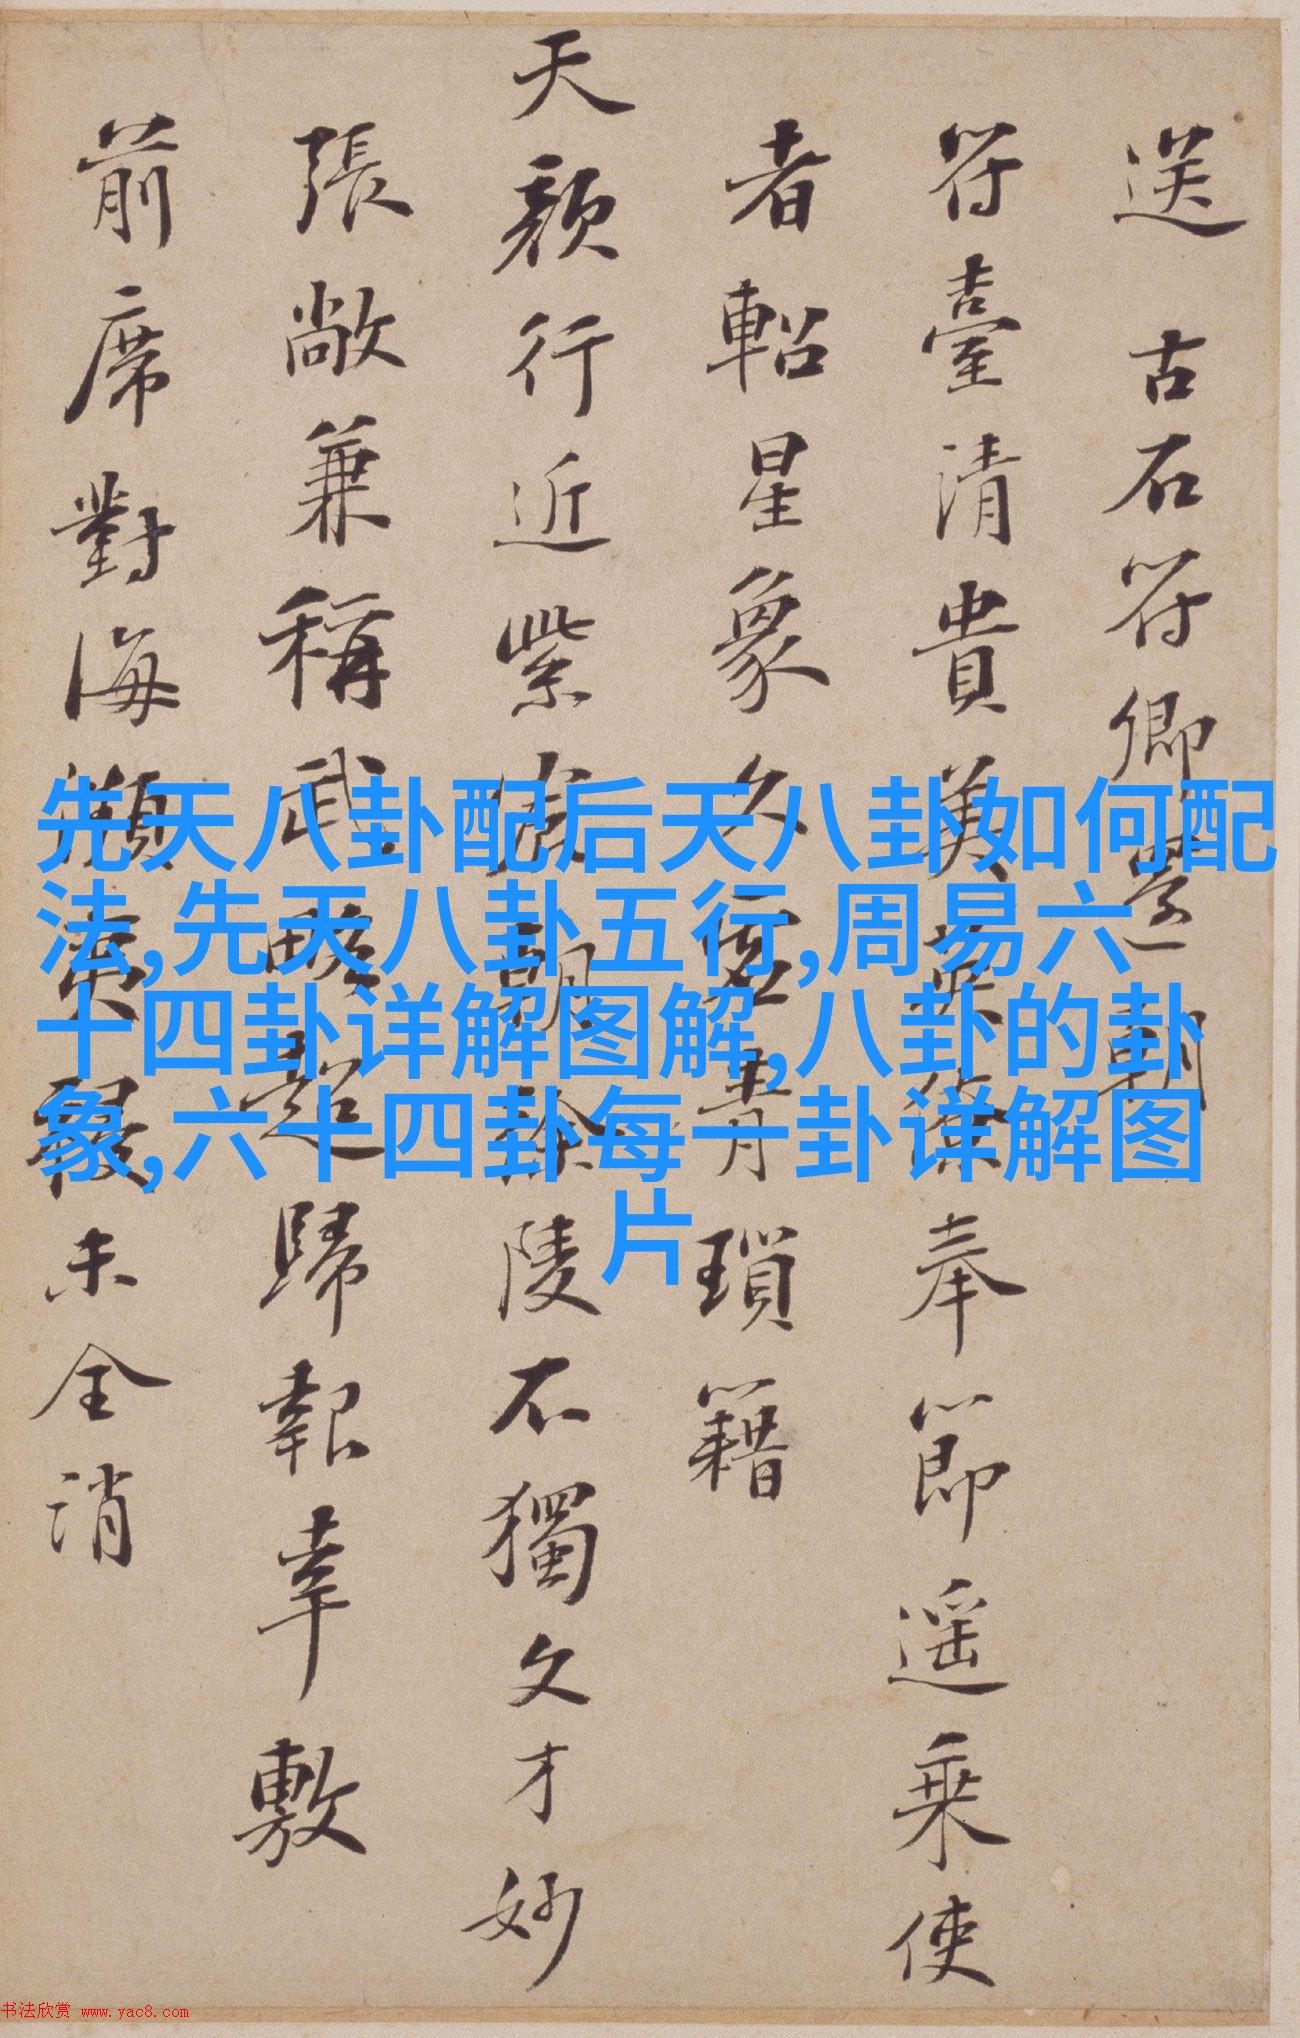 送 古石符卿還朝
符臺清貴美英僚奉節遥乘使
者軺星象久虚青瑣籍
天顔行近紫宸朝徐陵不獨文才妙
張敞兼稱武略超歸報幸敷
前席對海瀕夷未全消
先天八卦配后天八卦如何配
法,先天八卦五行,周易六
十四卦详解图解,八卦的卦
象,六十四卦每一卦详解图
片
书法欣赏 www.yac8.com